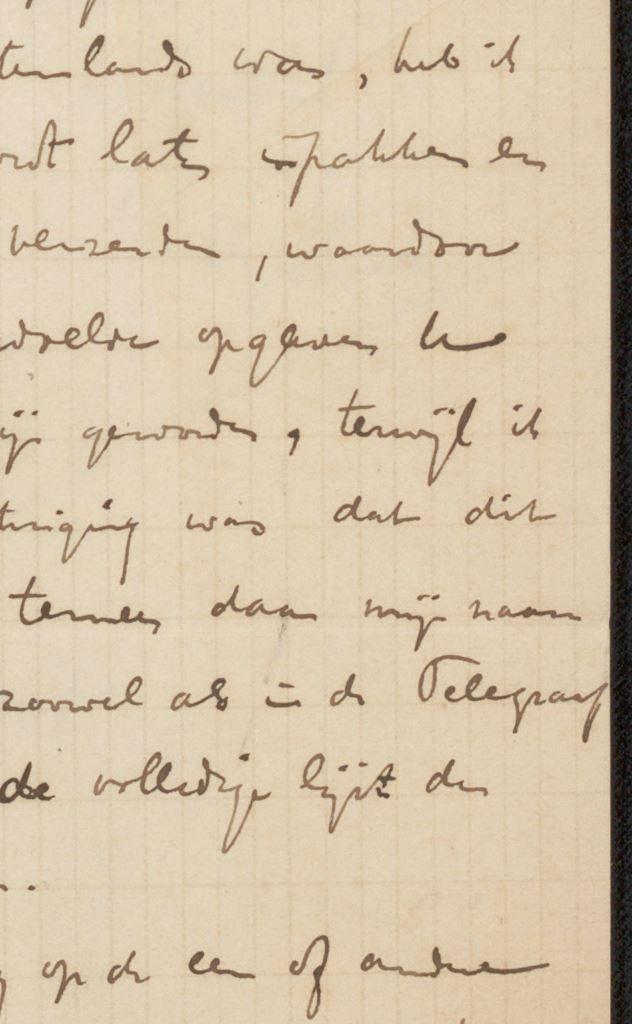 tenlands was, heb ik
ordt laten inpakken en
verzenden, waardoor
dzelve opgaven te
ij geworden, terwijl ik
tuiging was dat dit
temeer daar mijn naam
zoowel als in de Telegraaf
de volledige lijst der
..
op de een of andere